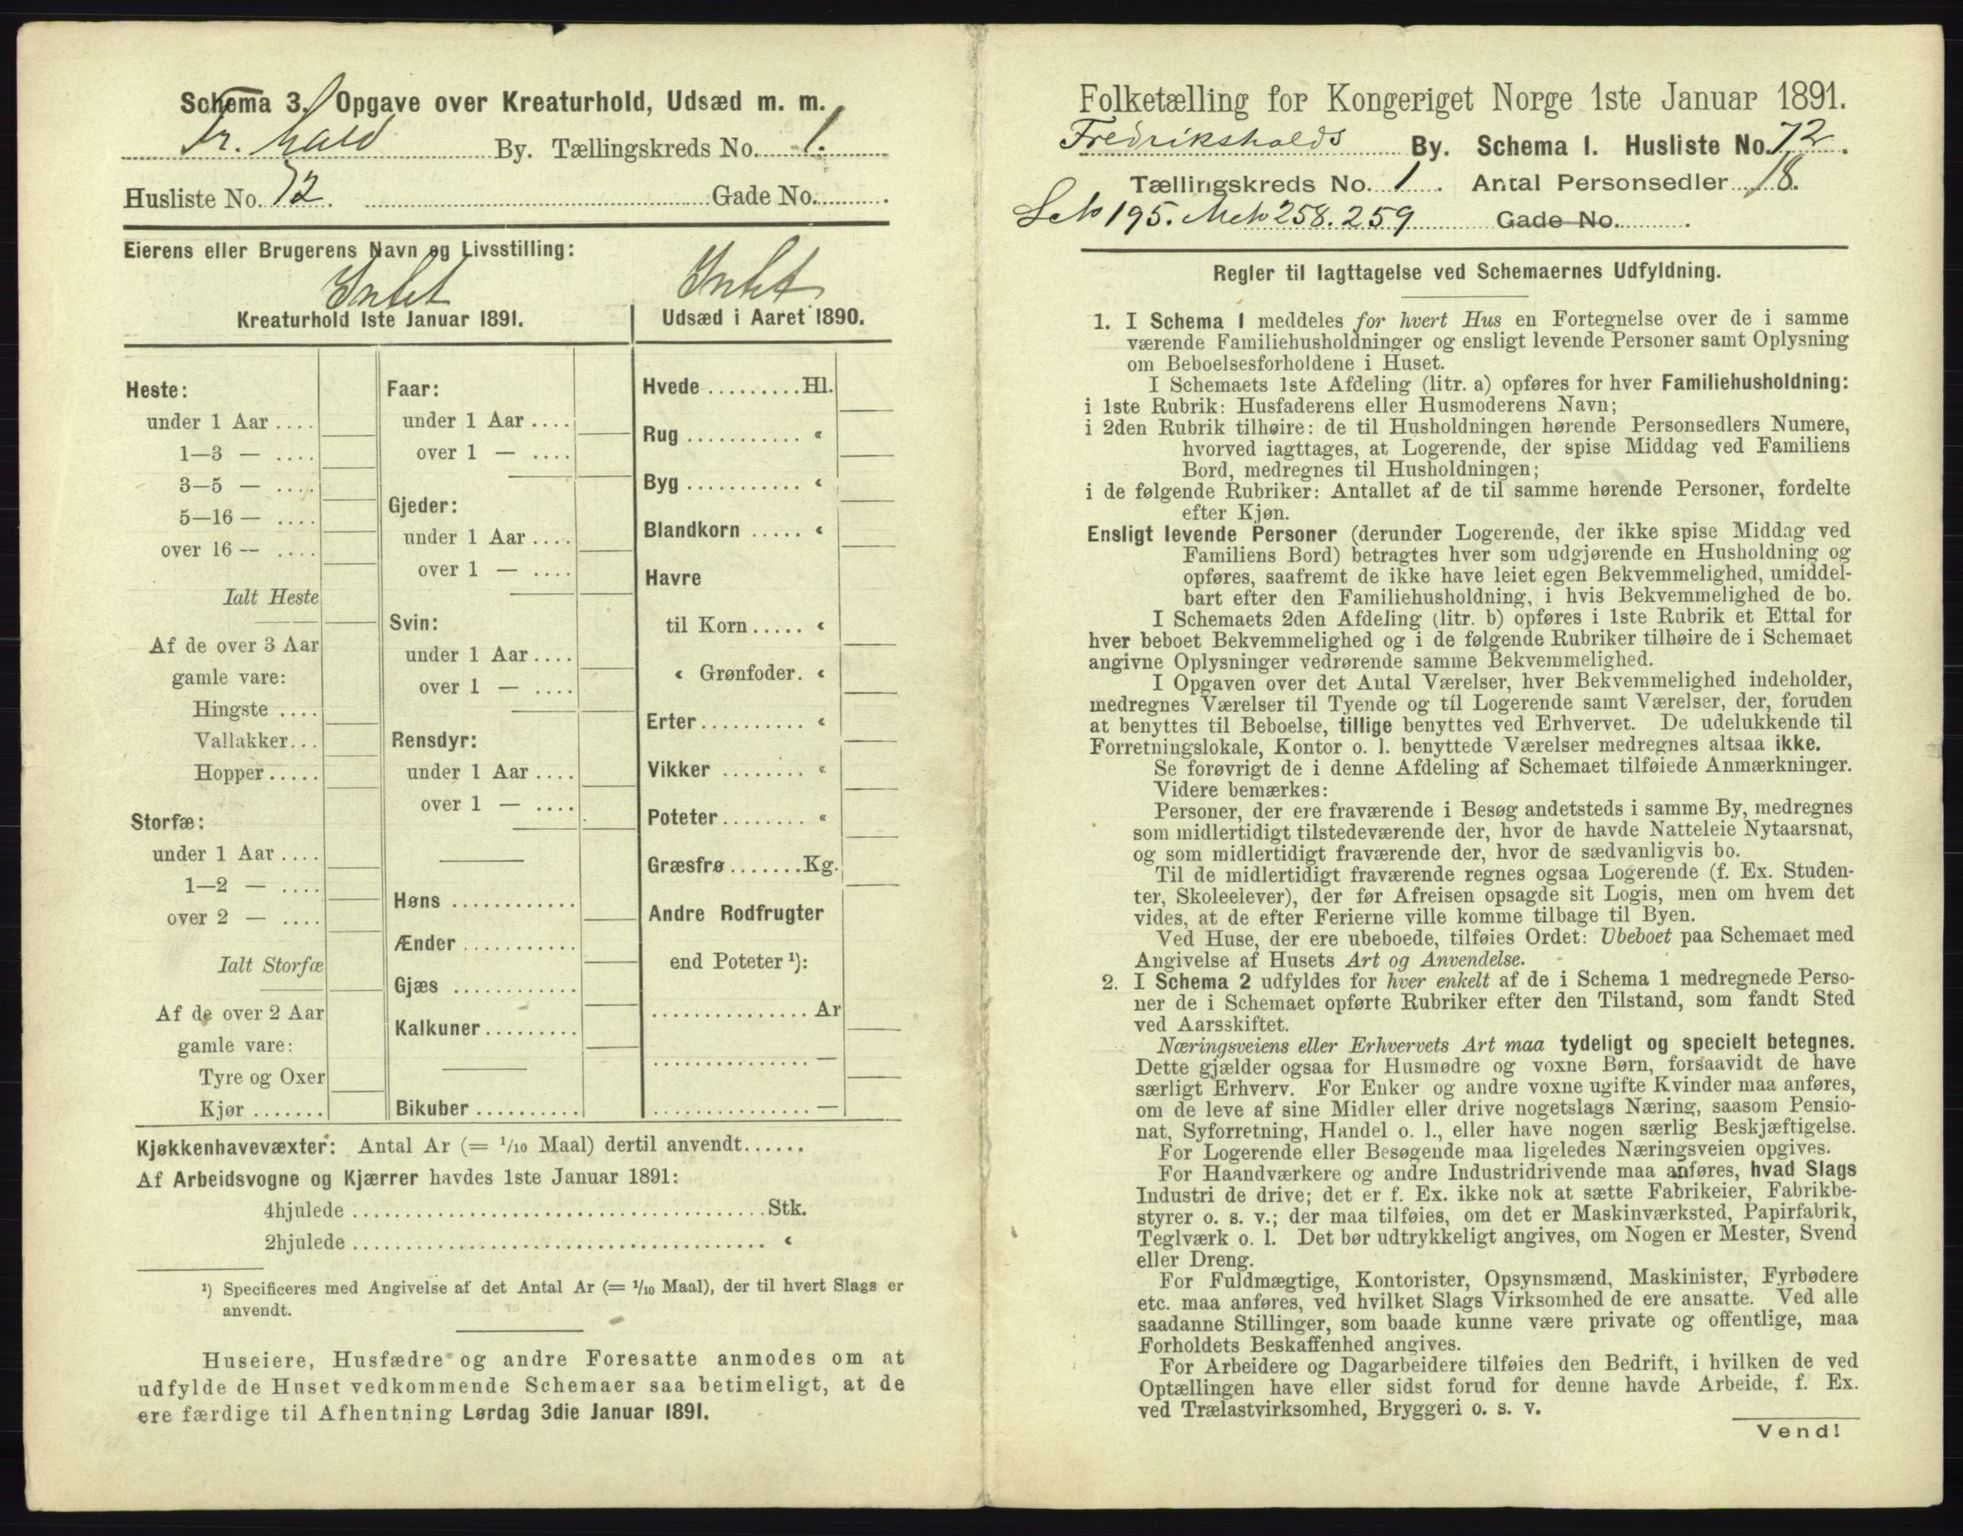 Schema 3. Opgave over Kreaturhold, Udsæd m. m.
Fr.hald By. Tællingskreds No. 1.
Husliste No. 72. Gade No.
Eierens eller Brugerens Navn og Livsstilling:
Intet Intet
Kreaturhold 1ste Januar 1891.
Heste:
under 1 Aar ....
1—3 — ....
3—5 — ....
5—16 — ....
over 16 — ....
Ialt Heste
Af de over 3 Aar
gamle vare:
Hingste ....
Vallakker...
Hopper.....
Storfæ:
under 1 Aar ....
1—2 — ....
over 2 — ....
Ialt Storfæ
Af de over 2 Aar
gamle vare:
Tyre og Oxer
Kjør .......
Faar:
under 1 Aar ....
over 1 — ....
Gjeder:
under 1 Aar ....
over 1 — ....
Svin:
under 1 Aar ....
over 1 — ....
Rensdyr:
under 1 Aar ....
over 1 — ....
Høns ............
Ænder ...........
Gjæs ............
Kalkuner.........
Bikuber ..........
Udsæd i Aaret 1890.
Hvede .........Hl.
Rug ........... «
Byg ........... «
Blandkorn ..... «
Havre
til Korn ..... «
« Grønfoder. «
Erter .......... «
Vikker ........ «
Poteter ........ «
Græsfrø .......Kg.
Andre Rodfrugter
end Poteter ¹):
............... Ar
............... —
............... —
Kjøkkenhavevæxter: Antal Ar (= 1/10 Maal) dertil anvendt......
Af Arbeidsvogne og Kjærrer havdes 1ste Januar 1891:
4hjulede ........................................Stk.
2hjulede ........................................ «
¹) Specificeres med Angivelse af det Antal Ar (= 1/10 Maal), der til hvert Slags er
anvendt.
Huseiere, Husfædre og andre Foresatte anmodes om at
udfylde de Huset vedkommende Schemaer saa betimeligt, at de
ere færdige til Afhentning Lørdag 3die Januar 1891.
Folketælling for Kongeriget Norge 1ste Januar 1891.
Fredrikshalds By. Schema 1. Husliste No. 72.
Tællingskreds No. 1. Antal Personsedler 18.
195. 258. 259 Gade No.
Regler til Iagttagelse ved Schemaernes Udfyldning.
1. I Schema 1 meddeles for hvert Hus en Fortegnelse over de i samme
værende Familiehusholdninger og ensligt levende Personer samt Oplysning
om Beboelsesforholdene i Huset.
I Schemaets 1ste Afdeling (litr. a) opføres for hver Familiehusholdning:
i 1ste Rubrik: Husfaderens eller Husmoderens Navn;
i 2den Rubrik tilhøire: de til Husholdningen hørende Personsedlers Numere,
hvorved iagttages, at Logerende, der spise Middag ved Familiens
Bord, medregnes til Husholdningen;
i de følgende Rubriker: Antallet af de til samme hørende Personer, fordelte
efter Kjøn.
Ensligt levende Personer (derunder Logerende, der ikke spise Middag ved
Familiens Bord) betragtes hver som udgjørende en Husholdning og
opføres, saafremt de ikke have leiet egen Bekvemmelighed, umiddel-
bart efter den Familiehusholdning, i hvis Bekvemmelighed de bo.
I Schemaets 2den Afdeling (litr. b) opføres i 1ste Rubrik et Ettal for
hver beboet Bekvemmelighed og i de følgende Rubriker tilhøire de i Schemaet
angivne Oplysninger vedrørende samme Bekvemmelighed.
I Opgaven over det Antal Værelser, hver Bekvemmelighed indeholder,
medregnes Værelser til Tyende og til Logerende samt Værelser, der, foruden
at benyttes til Beboelse, tillige benyttes ved Erhvervet. De udelukkende til
Forretningslokale, Kontor o. l. benyttede Værelser medregnes altsaa ikke.
Se forøvrigt de i denne Afdeling af Schemaet tilføiede Anmærkninger.
Videre bemærkes:
Personer, der ere fraværende i Besøg andetsteds i samme By, medregnes
som midlertidigt tilstedeværende der, hvor de havde Natteleie Nytaarsnat,
og som midlertidigt fraværende der, hvor de sædvanligvis bo.
Til de midlertidigt fraværende regnes ogsaa Logerende (f. Ex. Studen-
ter, Skoleelever), der før Afreisen opsagde sit Logis, men om hvem det
vides, at de efter Ferierne ville komme tilbage til Byen.
Ved Huse, der ere ubeboede, tilføies Ordet: Ubeboet paa Schemaet med
Angivelse af Husets Art og Anvendelse.
2. I Schema 2 udfyldes for hver enkelt af de i Schema 1 medregnede Perso-
ner de i Schemaet opførte Rubriker efter den Tilstand, som fandt Sted
ved Aarsskiftet.
Næringsveiens eller Erhvervets Art maa tydeligt og specielt betegnes.
Dette gjælder ogsaa for Husmødre og voxne Børn, forsaavidt de have
særligt Erhverv. For Enker og andre voxne ugifte Kvinder maa anføres,
om de leve af sine Midler eller drive nogetslags Næring, saasom Pensio-
nat, Syforretning, Handel o. l., eller have nogen særlig Beskjæftigelse.
For Logerende eller Besøgende maa ligeledes Næringsveien opgives.
For Haandværkere og andre Industridrivende maa anføres, hvad Slags
Industri de drive; det er f. Ex. ikke nok at sætte Fabrikeier, Fabrikbe-
styrer o. s. v.; der maa tilføies, om det er Maskinværksted, Papirfabrik,
Teglværk o. l. Det bør udtrykkeligt angives, om Nogen er Mester, Svend
eller Dreng.
For Fuldmægtige, Kontorister, Opsynsmænd, Maskinister, Fyrbødere
etc. maa anføres, ved hvilket Slags Virksomhed de ere ansatte. Ved alle
saadanne Stillinger, som baade kunne være private og offentlige, maa
Forholdets Beskaffenhed angives.
For Arbeidere og Dagarbeidere tilføies den Bedrift, i hvilken de ved
Optællingen have eller sidst forud for denne havde Arbeide, f. Ex.
ved Trælastvirksomhed, Bryggeri o. s. v.
Vend!